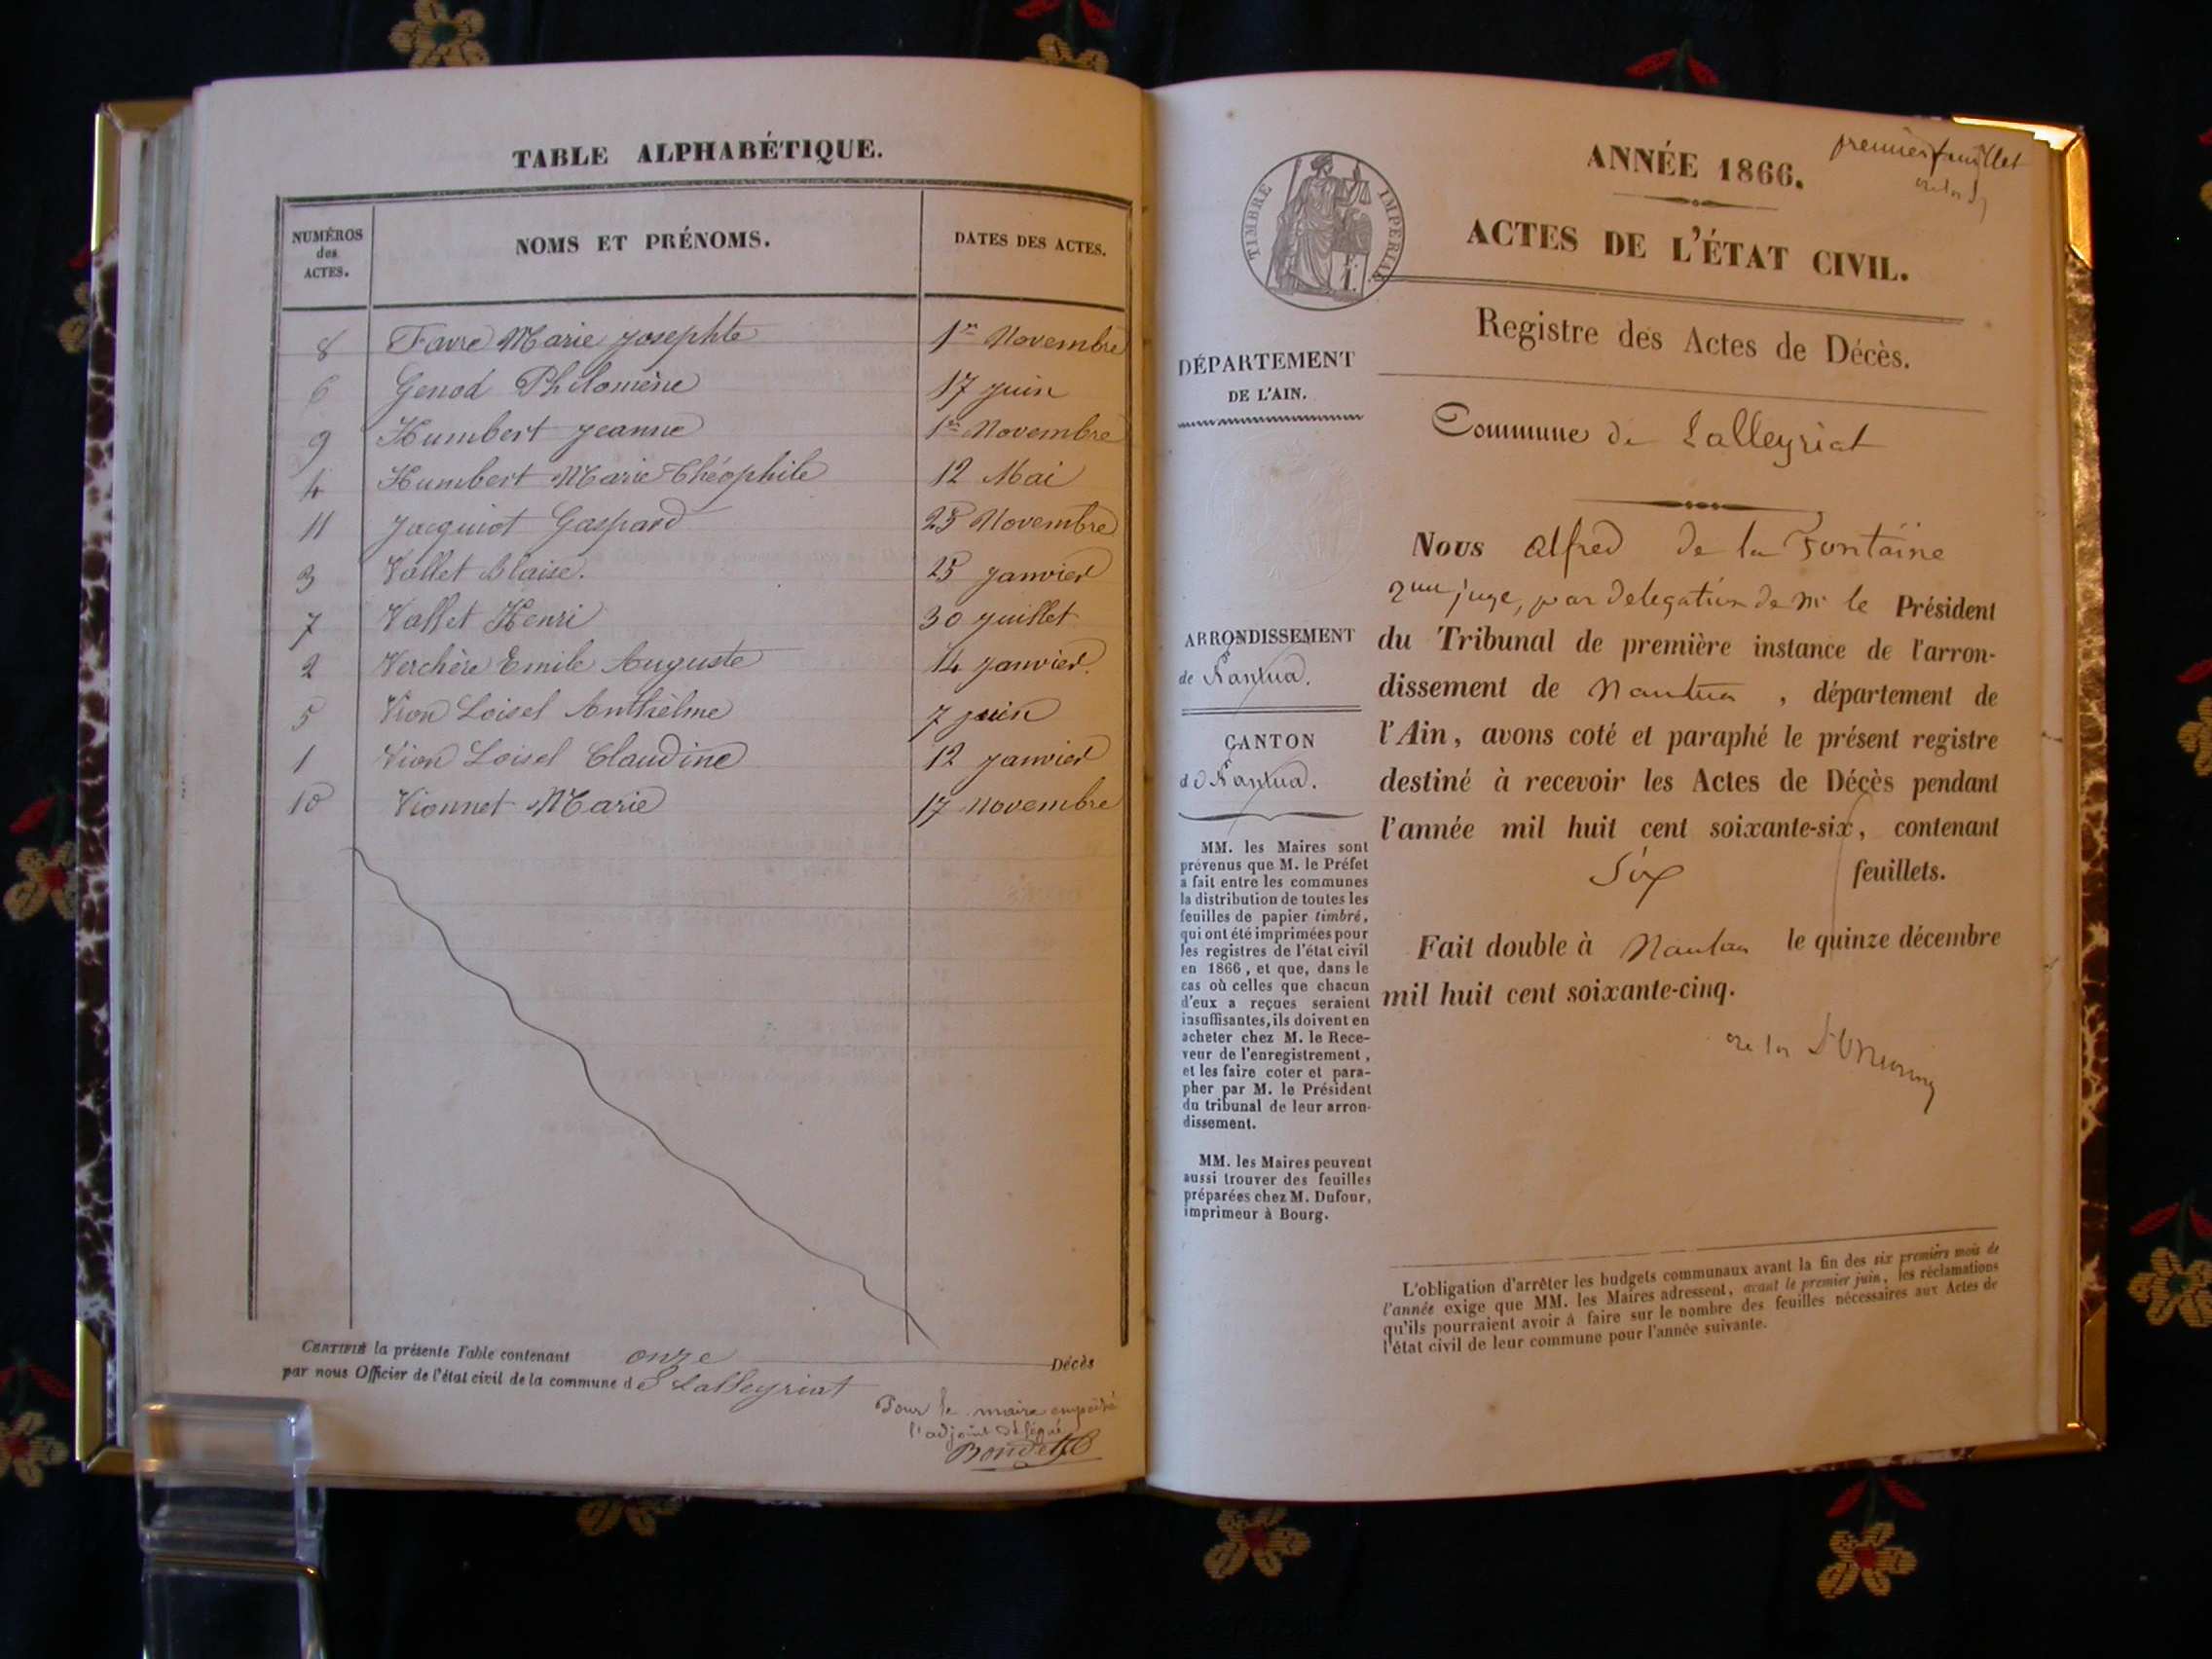 TABLE ALPHABÉTIQUE.
NUMÉROS
des
ACTES.
NOMS ET PRÉNOMS.
DATES DES ACTES.
8 Favre Marie Josephte 1er Novembre
6 Genod Philomène 17 juin
9 Humbert Jeanne 1er Novembre
4 Humbert Marie Théophile 12 Mai
11 Jacquiot Gaspard 25 Novembre
3 Vallet Blaise. 25 Janvier
7 Vallet Henri 30 juillet
2 Verchère Emile Auguste 14 Janvier.
5 Vion Loisel Anthelme 7 juin
1 Vion Loisel Claudine 12 Janvier
10 Vionnet Marie 17 Novembre
CERTIFIÉ la présente Table contenant onze Décès
par nous Officier de l'état civil de la commune de Lalleyriat
Pour le maire empêché
l'adjoint délégué
premier feuillet
ANNÉE 1866.
TIMBRE IMPÉRIAL
ACTES DE L'ÉTAT CIVIL.
Registre des Actes de Décès.
DÉPARTEMENT
DE L'AIN.
Commune de Lalleyriat
ARRONDISSEMENT
de Nantua.
CANTON
de Nantua.
MM. les Maires sont
prévenus que M. le Préfet
a fait entre les communes
la distribution de toutes les
feuilles de papier timbré,
qui ont été imprimées pour
les registres de l'état civil
en 1866, et que, dans le
cas où celles que chacun
d'eux a reçues seraient
insuffisantes, ils doivent en
acheter chez M. le Rece-
veur de l'enregistrement,
et les faire coter et para-
pher par M. le Président
du tribunal de leur arron-
dissement.
MM. les Maires peuvent
aussi trouver des feuilles
préparées chez M. Dufour,
imprimeur à Bourg.
Nous Alfred de la Fontaine
juge, par délégation de Mr le Président
du Tribunal de première instance de l'arron-
dissement de Nantua, département de
l'Ain, avons coté et paraphé le présent registre
destiné à recevoir les Actes de Décès pendant
l'année mil huit cent soixante-six, contenant
Six feuillets.
Fait double à Nantua le quinze décembre
mil huit cent soixante-cinq.
L'obligation d'arrêter les budgets communaux avant la fin des six premiers mois de
l'année exige que MM. les Maires adressent, avant le premier juin, les réclamations
qu'ils pourraient avoir à faire sur le nombre des feuilles nécessaires aux Actes de
l'état civil de leur commune pour l'année suivante.